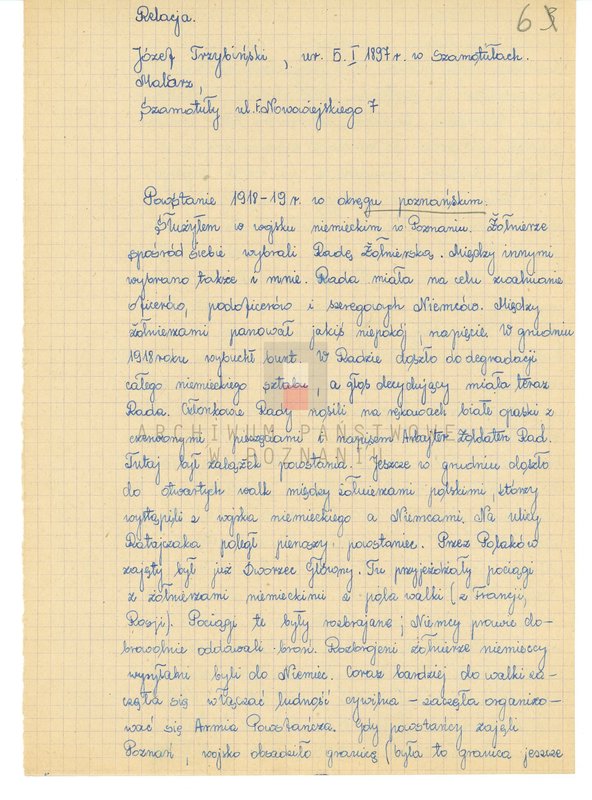 Relacja.
63
Józef Trzybiński, ur. 5.I 1897 r. w Szamotułach.
Malarz,
Szamotuły ul. F. Nowowiejskiego 7
Powstanie 1918-19 r. w okręgu poznańskim.
Służyłem w wojsku niemieckim w Poznaniu. Żołnierze
spośród siebie wybrali Radę Żołnierską. Między innymi
wybrano także i mnie. Rada miała na celu zwalnianie
oficerów, podoficerów i szeregowych Niemców. Między
żołnierzami panował jakiś niepokój, napięcie. W grudniu
1918 roku wybuchł bunt. W Radzie doszło do degradacji
całego niemieckiego sztabu, a głos decydujący miała teraz
Rada. Członkowie Rady nosili na rękawach białe opaski z
czerwonymi pieczęciami i napisem Arbajter Zoldaten Rad.
ARCHIWUM PAŃSTWOWE
W POZNANIU
Tutaj był zalążek powstania. Jeszcze w grudniu doszło
do otwartych walk między żołnierzami polskimi, którzy
wystąpili z wojska niemieckiego a Niemcami. Na ulicy
Ratajczaka poległ pierwszy powstaniec. Przez Polaków
zajęty był już Dworzec Główny. Tu przyjeżdżały pociągi
z żołnierzami niemieckimi z pola walki (z Francji,
Rosji). Pociągi te były rozbrajane; Niemcy prawie do-
browolnie oddawali broń. Rozbrojeni żołnierze niemieccy
wysyłani byli do Niemiec. Coraz bardziej do walki za-
częła się włączać ludność cywilna - zaczęła organizo-
wać się Armia Powstańcza. Gdy powstańcy zajęli
Poznań, wojsko obsadziło granicę (była to granica jeszcze